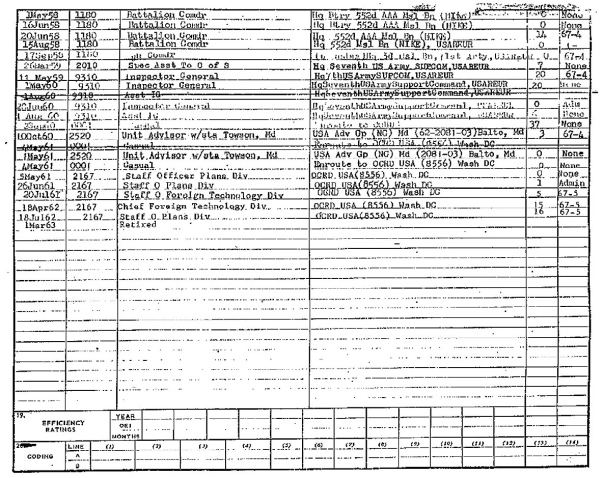 1May58 1180 Battalion Comdr Hq Btry 552d AAA Msl Bn (NIKE) 0 None
16Jun58 1180 Battalion Comdr Hq Btry 552d AAA Msl Bn (NIKE) 0 None
20Jun58 1180 Battalion Comdr Hq Btry 552d AAA Msl Bn (NIKE) 14 67-4
15Aug58 1180 Battalion Comdr Hq 552d Msl Bn (NIKE), USAREUR
1180 Comdr
26Mar59 2010 Spec Asst To C of S Hq Seventh US Army SUPCOM, USAREUR 7 None
11 May59 9310 Inspector General Hq7thUSArmySUPCOM,USAREUR 20 67-4
1May60 9310 Inspector General HqSeventhUSArmySupportCommand,USAREUR 20
9310 Asst IG HqSeventhUSArmySupportCommand,USAREUR
9310 Inspector General 0
Asst IG None
37 None
10Oct60 2520 Unit Advisor w/sta Towson, Md USA Adv Gp (NG) Md (62-2081-03)Balto, Md 3 67-4
4May61 0001 Casual Enroute to OCRD USA (8556) Wash DC
1May61 2520 Unit Advisor w/sta Towson, Md USA Adv Gp (NG) Md (2081-03) Balto, Md 0 None
4May61 0001 Casual Enroute to OCRD USA (8556) Wash DC 0 None
5May61 2167 Staff Officer Plans Div OCRD USA(8556) Wash DC 0 None
26Jun61 2167 Staff O Plans Div OCRD USA (8556) Wash DC 1 Admin
20Jul61 2167 Staff O Foreign Technology Div OCRD USA (8556) Wash DC 5 67-5
18Apr62 2167 Chief Foreign Technology Div OCRD USA (8556) Wash DC 15 67-5
18Jul62 2167 Staff O Plans Div OCRD USA (8556) Wash DC 16 67-5
1Mar63 Retired
19. EFFICIENCY RATINGS YEAR
OEI
MONTHS
CODING LINE (1) (2) (3) (4) (5) (6) (7) (8) (9) (10) (11) (12) (13) (14)
A
B